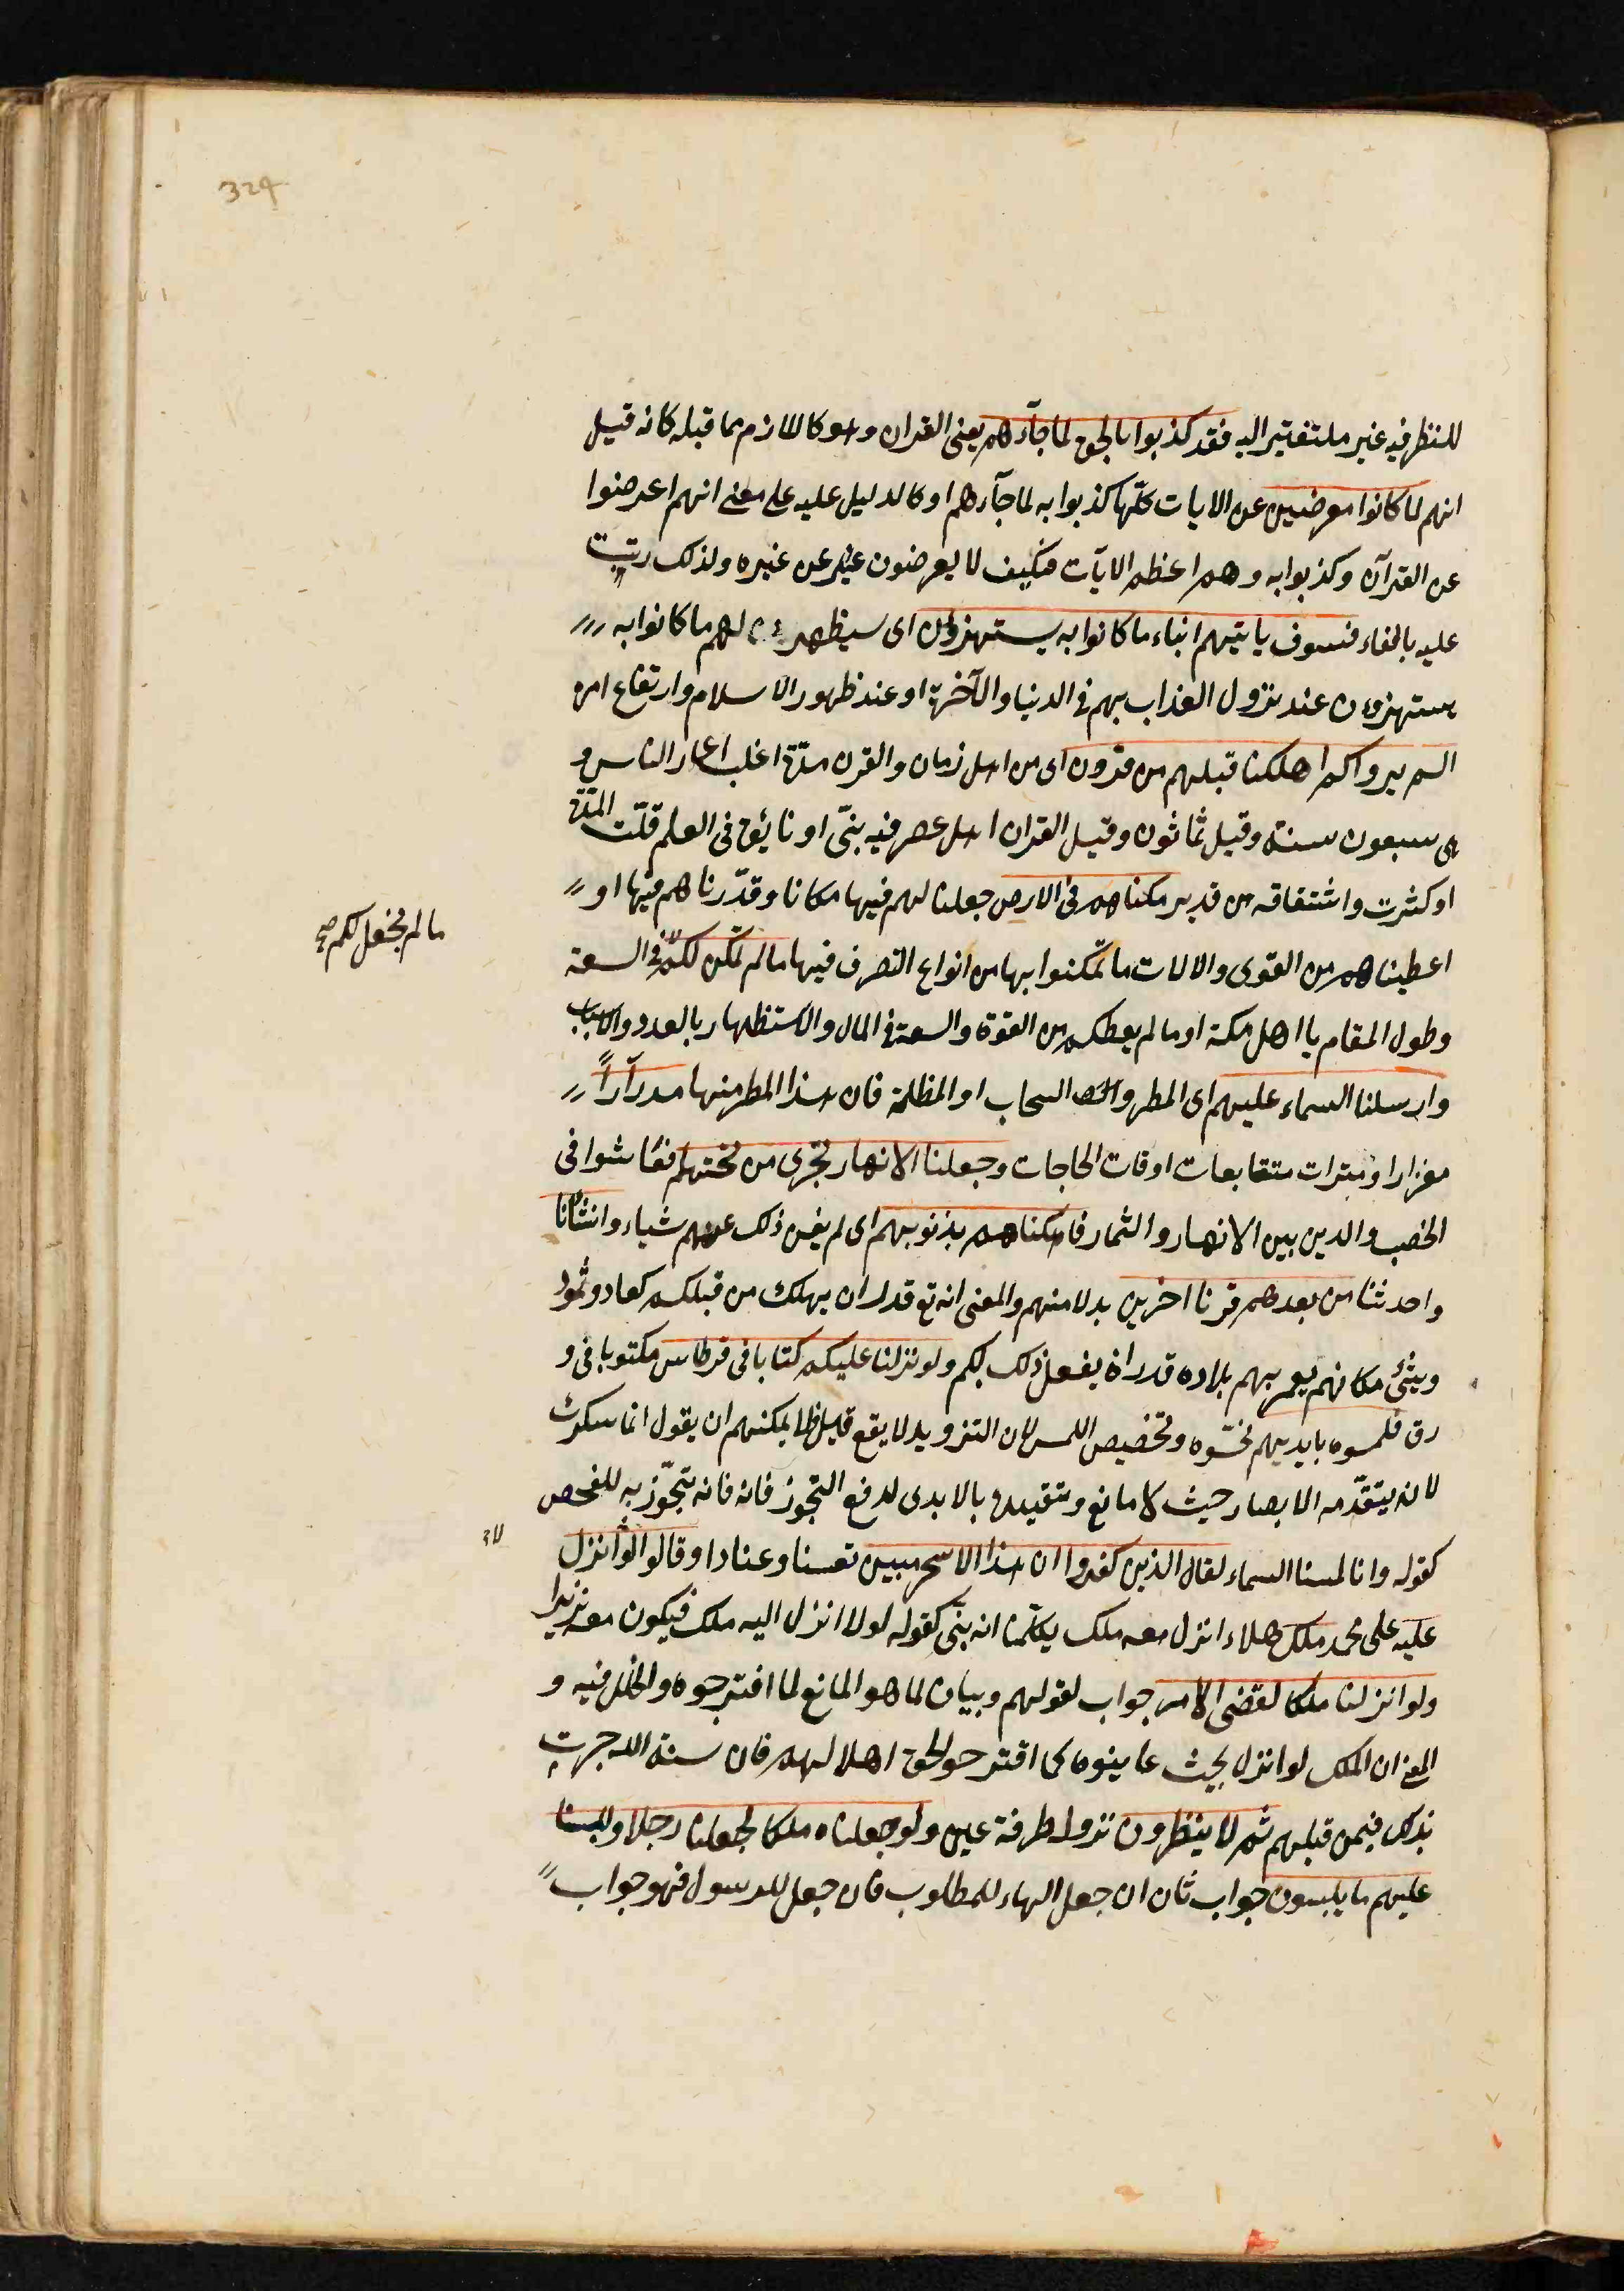 324
للنظر فيه غير ملتفتين اليه فقد كذبوا بالحق لما جآءهم يعنى القران وهو كاللازم مما قبله كانه قيل
انهم لما كانوا معرضين عن الايات كلّها كذبوا به لما جآءهم او كالدليل عليه على معنى انهم اعرضوا
عن القرآن وكذبوا به وهم اعظم الآيآت فكيف لا يعرضون عن غيره ولذلك رتبت
عليه بالفاء فسوف ياتيهم انباء ما كانوا به يستهزؤن اى سيظهر لهم ما كانوا به
يستهزؤن عند نزول العذاب بهم فى الدنيا والآخرة او عند ظهور الاسلام وارتفاع امره
الم يروا كم اهلكنا قبلهم من قرون اى من اهل زمان والقرن مدّة اغلب اعمار الناس و
هى سبعون سنة وقيل ثمانون وقيل القران اهل عصر فيه نبىّ او فائق فى العلم قلّت المدّة
او كثرت واشتقاقه من قدير مكناهم فى الارض جعلنا لهم فيها مكانا وقدّرناهم فيها او
اعطيناهم من القوى والالات ما تمكنوا بها من انواع التصرف فيها مالم نمكن لكم فى السعة
ما لم نجعل لكم صح
وطول المقام يا اهل مكة او ما لم يعطكم من القوة والسعة فى المال والاستظهار بالعدد والاسباب
وارسلنا السماء عليهم اى المطر و السحاب او المظلة فان هذا المطر منها مدرآراً
مغزارا ومبترات متقابعات اوقات الحاجات وجعلنا الانهار تجرى من تحتهم فعاشوا فى
الخصب والدين بين الانهار والثمار فاهلكناهم بذنوبهم اى لم يغن ذلك عنهم شياء وانشأنا
واحدثنا من بعدهم قرنا اخرين بدلا منهم والمعنى انه تع قدر ان يهلك من قبلكم كعاد وثمود
وينشئ مكانهم يعمر بهم بلاده قدر ان يفعل ذلك بكم ولو نزلنا عليكم كتابا فى قرطاس مكتوبا فى و
رق فلمسوه بايديهم نحسّوه وتخصيص اللمس لان التزويد لا يقع فلا يمكنهم ان يقول انما سكرت
لانه يتقدّمه الابصار حيث لا مانع وتقييده بالايدى لدفع التجوز فانه فانه يتجوّز به للفحص
كقوله وانا لمسنا السماء لقال الذين كفروا ان هذا الا سحر مبين تعسنا وعنادا وقالوا لولا انزل
عليه على محمد ملك هلاء انزل معه ملك يكلّمنا انه نبىّ كقوله لولا انزل اليه ملك فيكون معه نذيرا
ولو انزلنا ملكا لقضى الامر جواب لقولهم وبيان لما هو المانع لما اقترحوه والخلل فيه و
المعنى ان الملك لو انزل بحيث عاينوه كما اقترحو لحق اهلا لهم فان سنة الله جرت
بذلك فيمن قبلهم ثم لا ينظرون نزوله طرفة عين ولو جعلناه ملكا لجعلناه رجلا وللبسنا
عليهم ما يلبسون جواب ثان ان جعل الهاء للمطلوب فان جعل للرسول فهو جواب